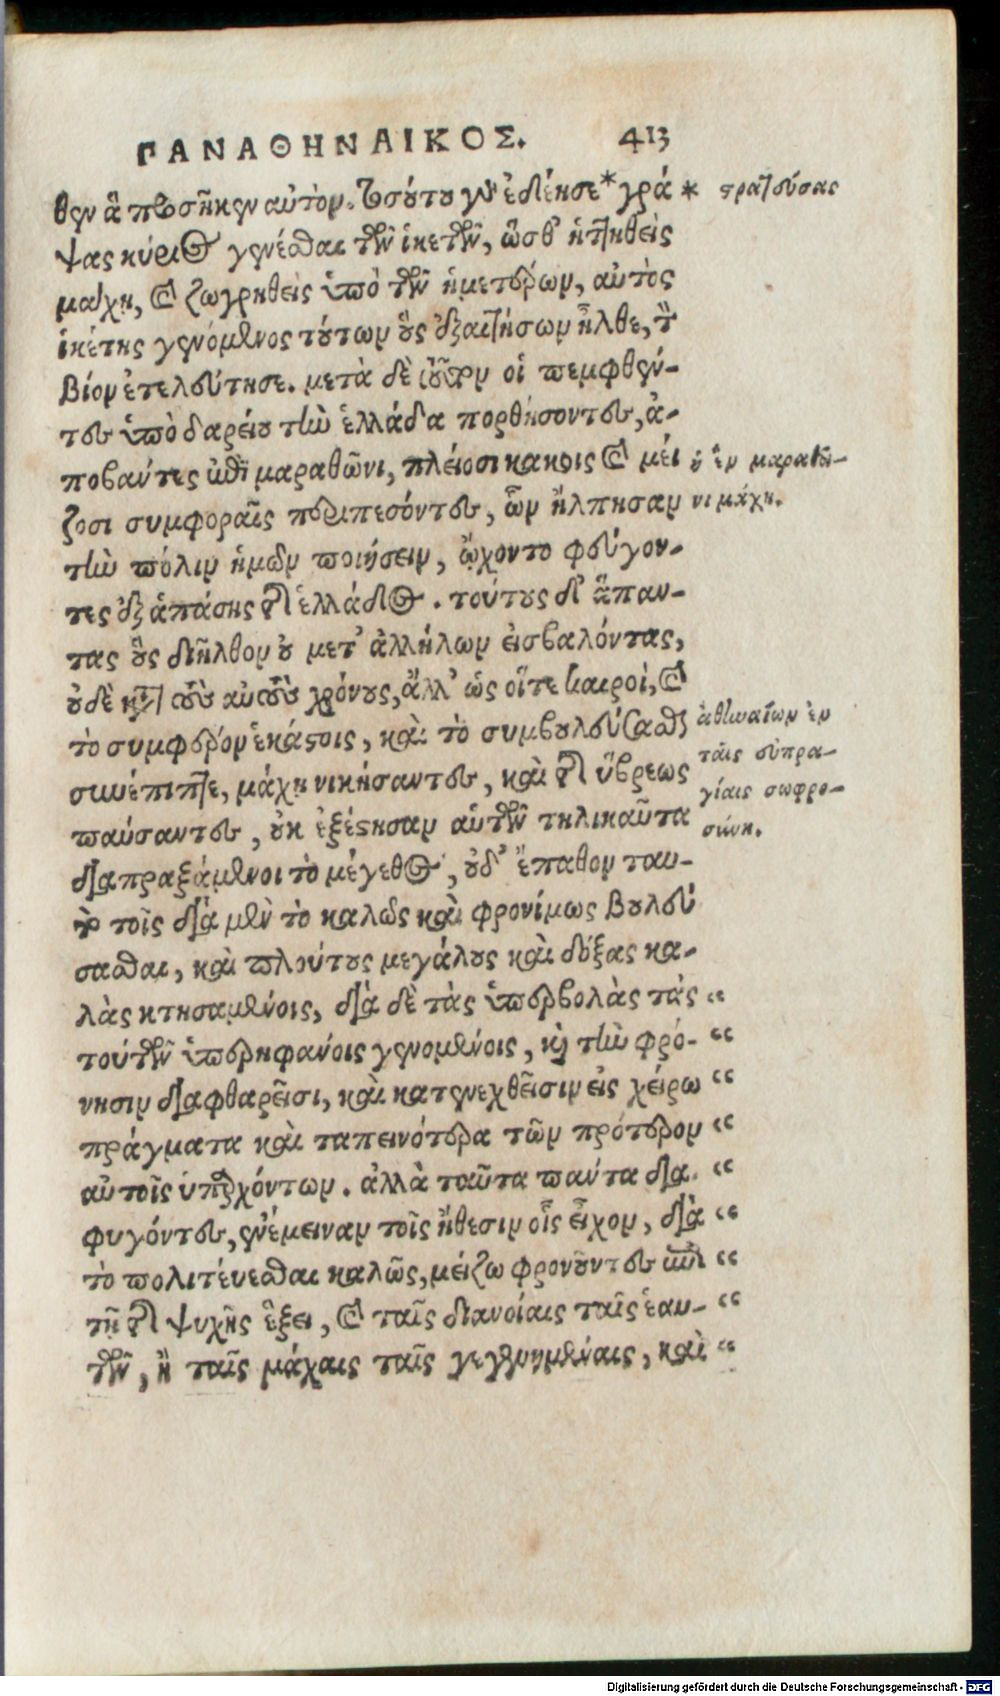 ΠΑΝΑΘΗΝΑΙΚΟΣ. 413
θεν ἃ προσῆκεν αὐτὸν. τοσούτου γὰρ ἐδέησε* γρά * στρατεύσας
ψας κύριος γενέσθαι τῶν ἱκετῶν, ὥσθ' ἡττηθεὶς
μάχῃ, καὶ ζωγρηθεὶς ὑπὸ τῶν ἡμετέρων, αὐτὸς
ἱκέτης γενόμενος τούτων οὓς ἐξαιτήσων ἦλθε, τὸν
βίον ἐτελεύτησε. μετὰ δὲ τοῦτον οἱ πεμφθέν-
τες ὑπὸ δαρείου τὴν ἑλλάδα πορθήσοντες, ἀ-
ποβάντες ἐπὶ μαραθῶνι, πλέιοσι κακοις καὶ μεί ἡ ἐν μαραθῶ-
ζοσι συμφοραῖς περιπεσόντες, ὧν ἤλπησαν νι μάχη.
τὴν πόλιν ἡμῶν ποιήσειν, ᾤχοντο φεύγον-
τες ἐξ ἁπάσης τῆς ἑλλάδος. τούτους δ' ἅπαν-
τας οὓς διῆλθον οὐ μετ' ἀλλήλων εἰσβαλόντας,
οὐδὲ κατὰ τοὺς αὐτοὺς χρόνους, ἀλλ' ὡς οἵτε καιροὶ, καὶ
τὸ συμφέρον ἑκάστοις, καὶ τὸ συμβουλεύεσθαι ἀθηναίων ἐν
συνέπιπτε, μάχῃ νικήσαντες, καὶ τῆς ὕβρεως ταῖς εὐπρα-
παύσαντες, οὐκ ἐξέστησαν αὑτῶν τηλικαῦτα γίαις σωφρο-
διαπραξάμενοι τὸ μέγεθος, οὐδ' ἔπαθον ταυ- σύνη.
τὸ τοῖς διὰ μὲν τὸ καλῶς καὶ φρονίμως βουλεύ
σασθαι, καὶ πλούτους μεγάλους καὶ δόξας κα-
λὰς κτησαμένοις, διὰ δὲ τὰς ὑπερβολὰς τὰς “
τούτων ὑπερηφάνοις γενομένοις, καὶ τὴν φρό- “
νησιν διαφθαρεῖσι, καὶ κατενεχθεῖσιν εἰς χείρω “
πράγματα καὶ ταπεινότερα τῶν πρότερον “
αὐτοῖς ὑπαρχόντων. ἀλλὰ ταῦτα πάντα δια “
φυγόντες, ἐνέμειναν τοῖς ἤθεσιν οἷς εἶχον, διὰ “
τὸ πολιτέυεσθαι καλῶς, μέιζω φρονοῦντες ἐπὶ “
τῇ τῆς ψυχῆς ἕξει, καὶ ταῖς διανοίαις ταῖς ἑαυ- “
τῶν, ἢ ταῖς μάχαις ταῖς γεγενημέναις, καὶ “
Digitalisierung gefördert durch die Deutsche Forschungsgemeinschaft - DFG